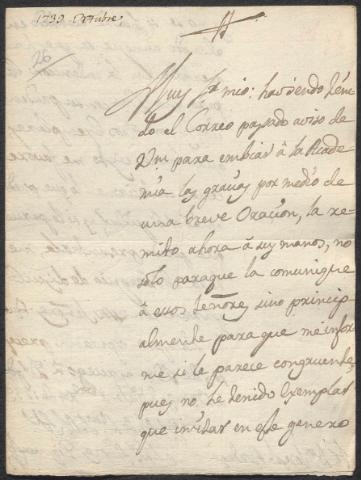 1739. Octubre
26
Muy Sr. mio: haviendo teni
do el Correo pasado aviso de
Vm para embiar â la Acade
mia las gracias por medio de
una breve Oracion, la re
mito ahora â sus manos, no
solo para que la comunique
â essos Señores, sino princip
almente para que me infor
me si le parece congruente,
pues no he tenido exemplar
que imitar en este genero